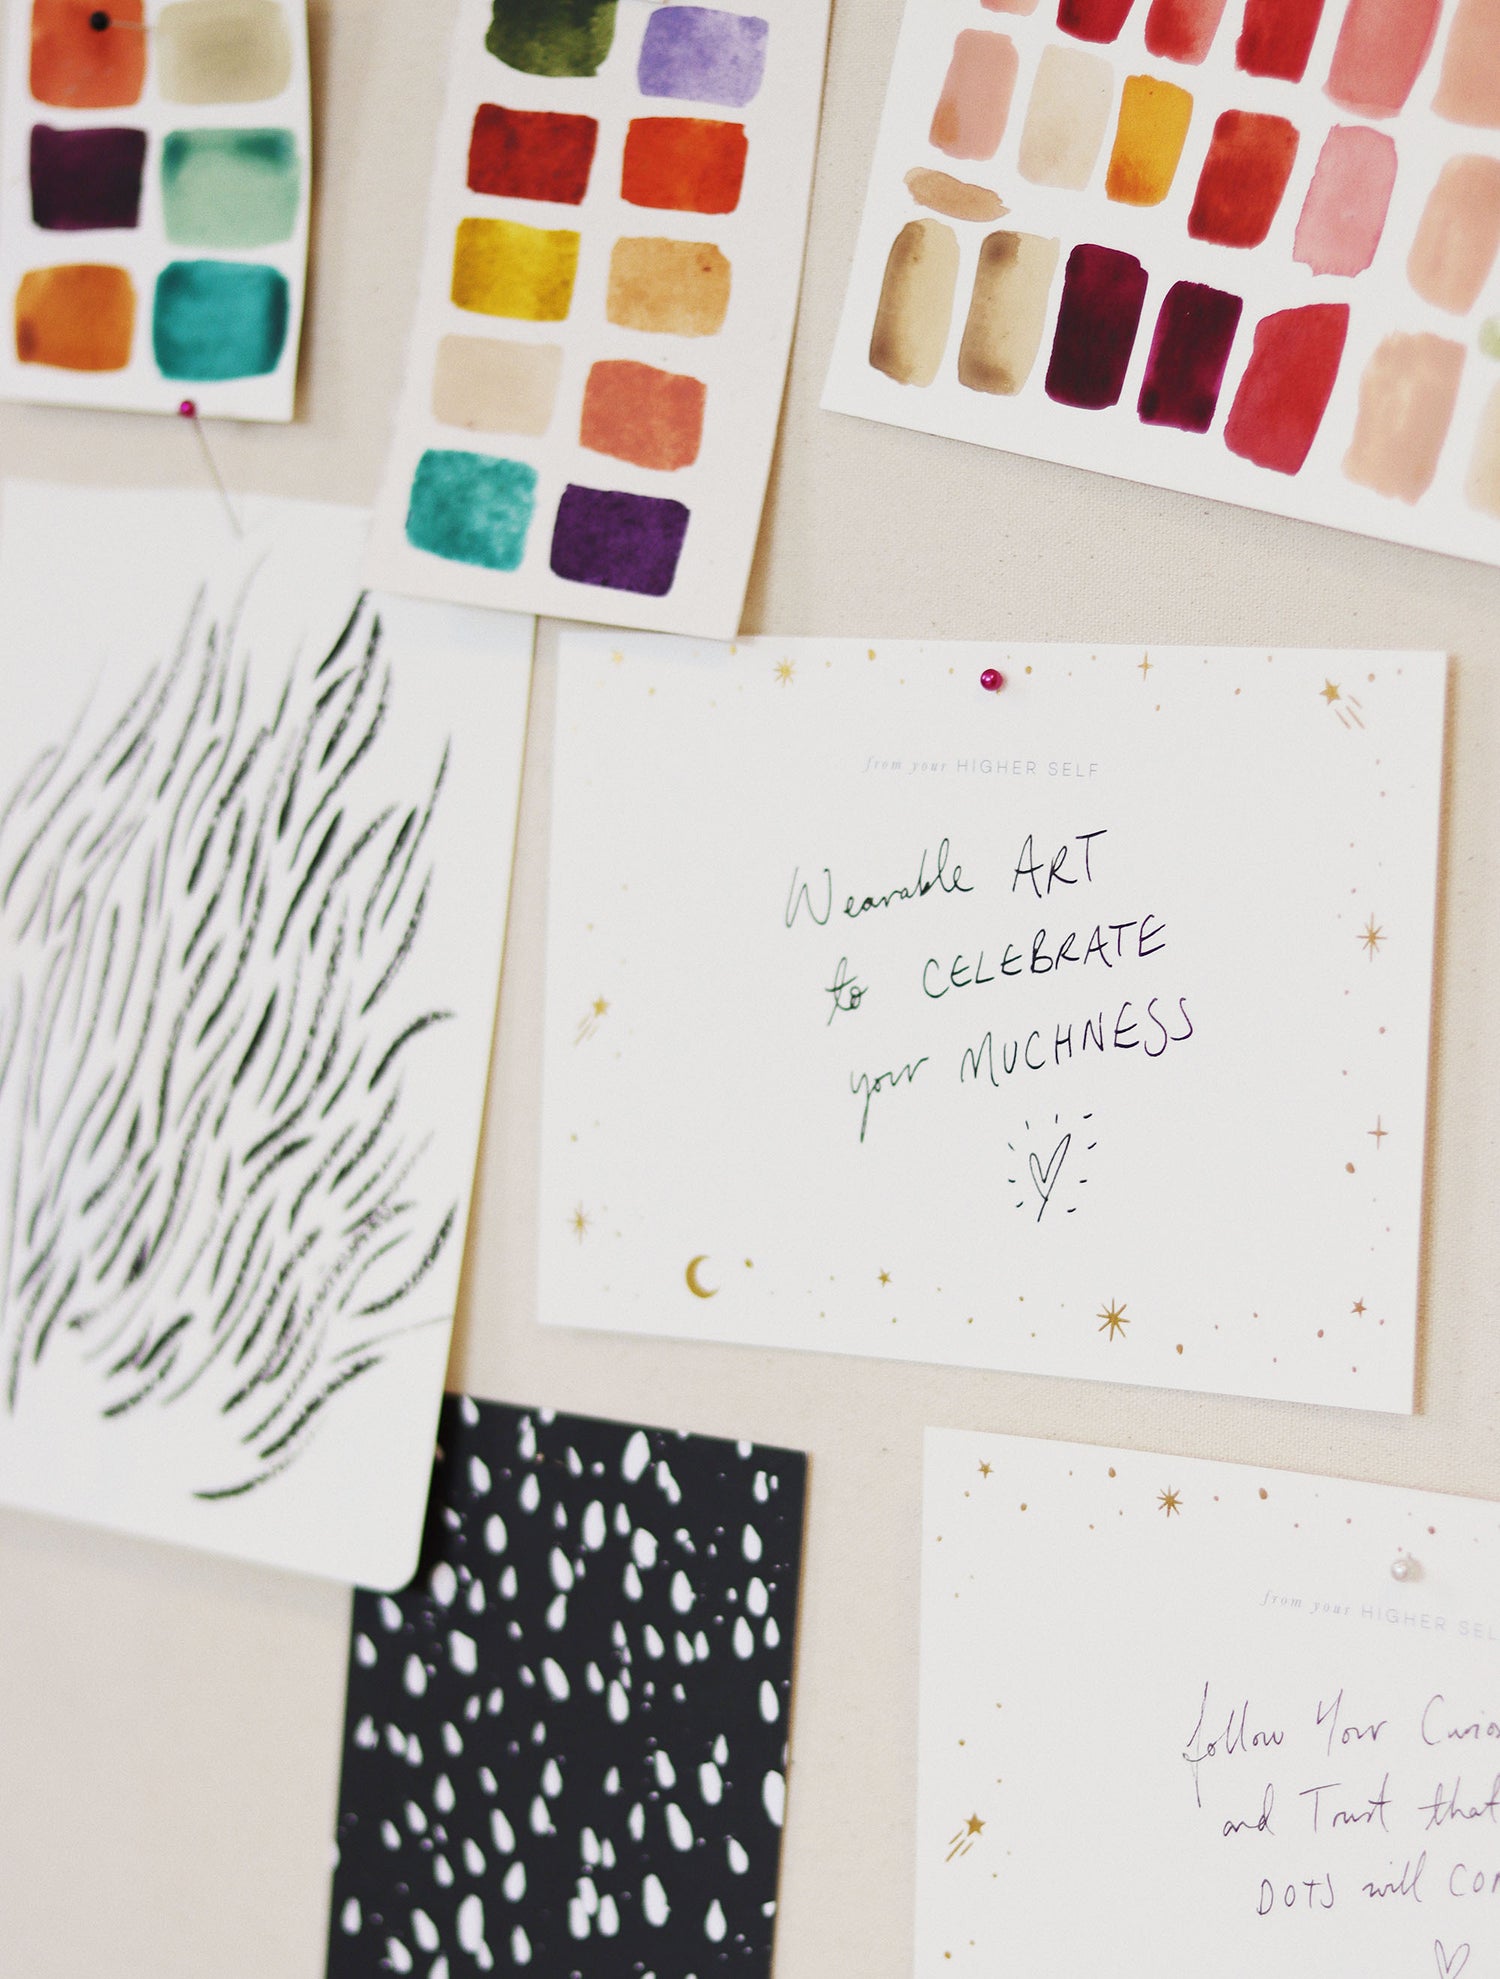 from your HIGHER SELF
Wearable ART
to CELEBRATE
your MUCHNESS
from your HIGHER SEL
follow Your Curios
and Trust that
DOTS will CON